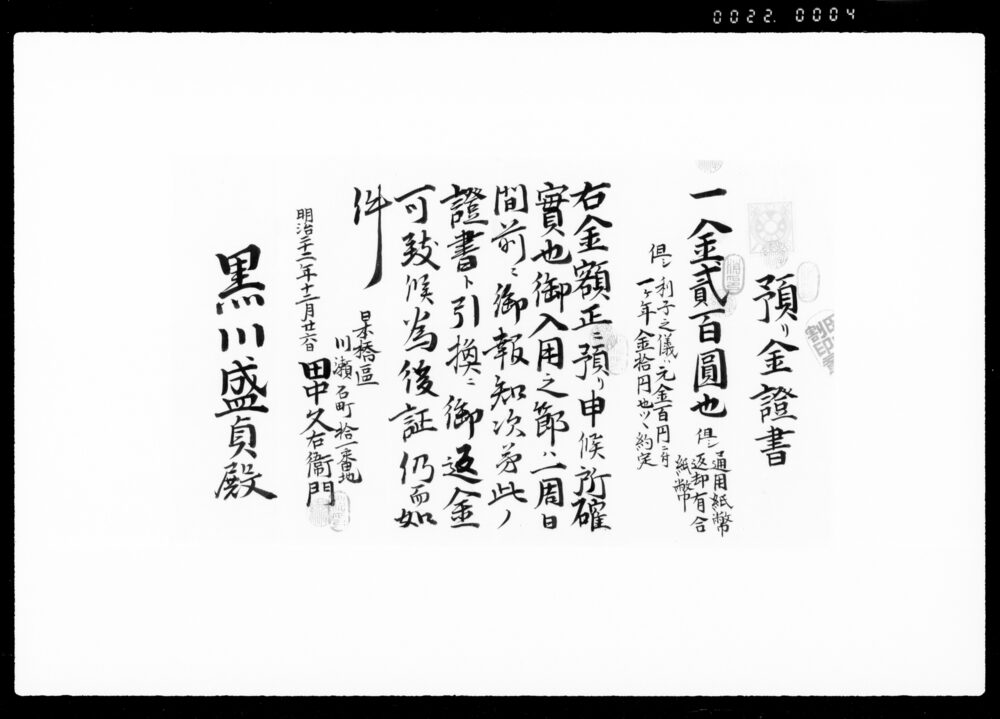 0022. 0004
預リ金證書
一金貳百圓也
但シ通用紙幣
返却有合
紙幣
但シ利子之儀ハ元金百円ニ付
一ケ年金拾円也ツヽ約定
右金額正ニ預リ申候所確
實也御入用之節ハ二周日
間前ニ御報知次第此ノ
證書ト引換ニ御返金
可致候為後証仍而如
件
明治二十二年十二月廿六日
日本橋區
川瀬石町拾一番地
田中久右衞門
黒川盛貞殿